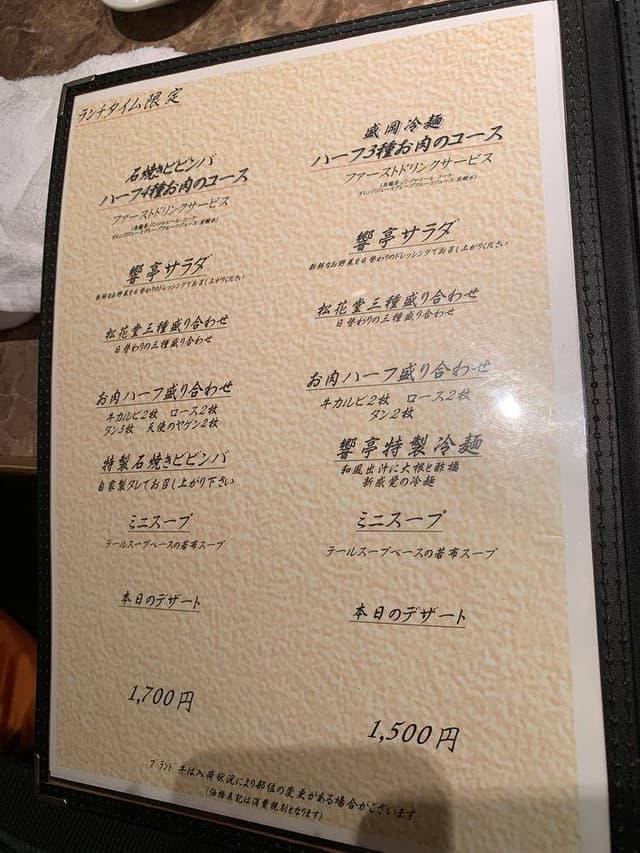 ランチタイム限定
石焼きビビンバ
ハーフ4種お肉のコース
ファーストドリンクサービス
響亭サラダ
新鮮なお野菜を日替わりのドレッシングでお召し上がりください
松花堂三種盛り合わせ
日替わりの三種盛り合わせ
お肉ハーフ盛り合わせ
牛カルビ2枚 ロース2枚
タン3枚 天使のヤゲン2枚
特製石焼きビビンバ
自家製タレでお召し上がり下さい
ミニスープ
テールスープベースの若布スープ
本日のデザート
1,700円
盛岡冷麺
ハーフ3種お肉のコース
ファーストドリンクサービス
響亭サラダ
新鮮なお野菜を日替わりのドレッシングでお召し上がりください
松花堂三種盛り合わせ
日替わりの三種盛り合わせ
お肉ハーフ盛り合わせ
牛カルビ2枚 ロース2枚
タン2枚
響亭特製冷麺
和風出汁に大根と酢橘
新感覚の冷麺
ミニスープ
テールスープベースの若布スープ
本日のデザート
1,500円
ブランド牛は入荷状況により部位の変更がある場合がございます
(価格表記は消費税別となります)